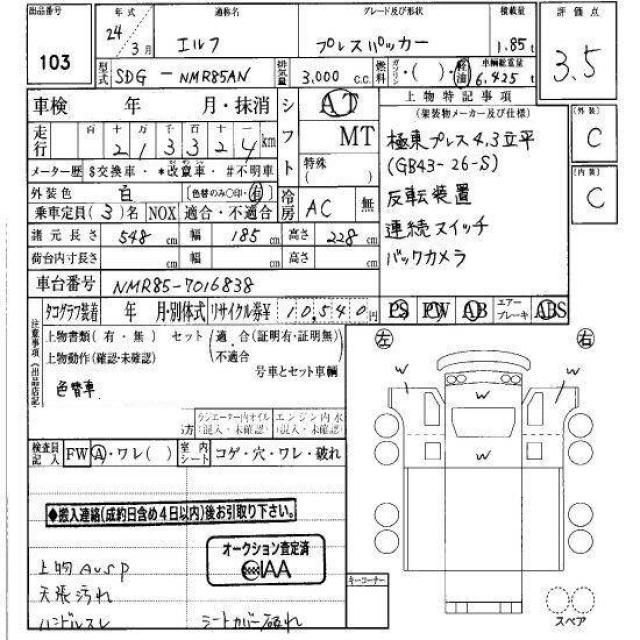 出品番号 103
年式 24年 3月
通称名 エルフ
グレード及び形状 プレスパッカー
積載量 1.85t
評価点 3.5
型式 SDG-NMR85AN
排気量 3,000 c.c.
燃料 ガソリン・( )・軽油
車輌総重量 6.425t
車検 年 月・抹消
シフト AT
MT
特殊( )
上物特記事項
(架装物メーカー及び仕様)
極東プレス4.3立平
(GB43-26-S)
反転装置
連続スイッチ
バックカメラ
(外装) C
(内装) C
走行 百 十 万 千 百 十 一
2 1 3 3 2 4 km
メーター歴 $交換車・*改竄車・#不明車
外装色 白 (色替のみ○印・有)
乗車定員(3)名 NOX 適合・不適合
冷房 AC 無
諸元長さ 548cm 幅 185cm 高さ 228cm
荷台内寸長さ cm 幅 cm 高さ cm
車台番号 NMR85-7016838
タコグラフ装着 年 月・別体式 リサイクル券¥ 10,540円
PS PW AB エアーブレーキ ABS
注意事項(出品店記
上物書類(有・無) セット(適合(証明有・証明無)・不適合)
上物動作(確認・未確認) 号車とセット車輌
色替車
ラジエーター内オイル(混入・未確認) エンジン内水(混入・未確認)
検査員記入 FW A・ワレ( ) 室内シート コゲ・穴・ワレ・破れ
◆搬入連絡(成約日含め4日以内)後お引取り下さい。
オークション査定済
IAA
上物AUSP
天張汚れ
ハンドルスレ シートカバー破れ
キーコーナー
左 右
W W W
W
スペア